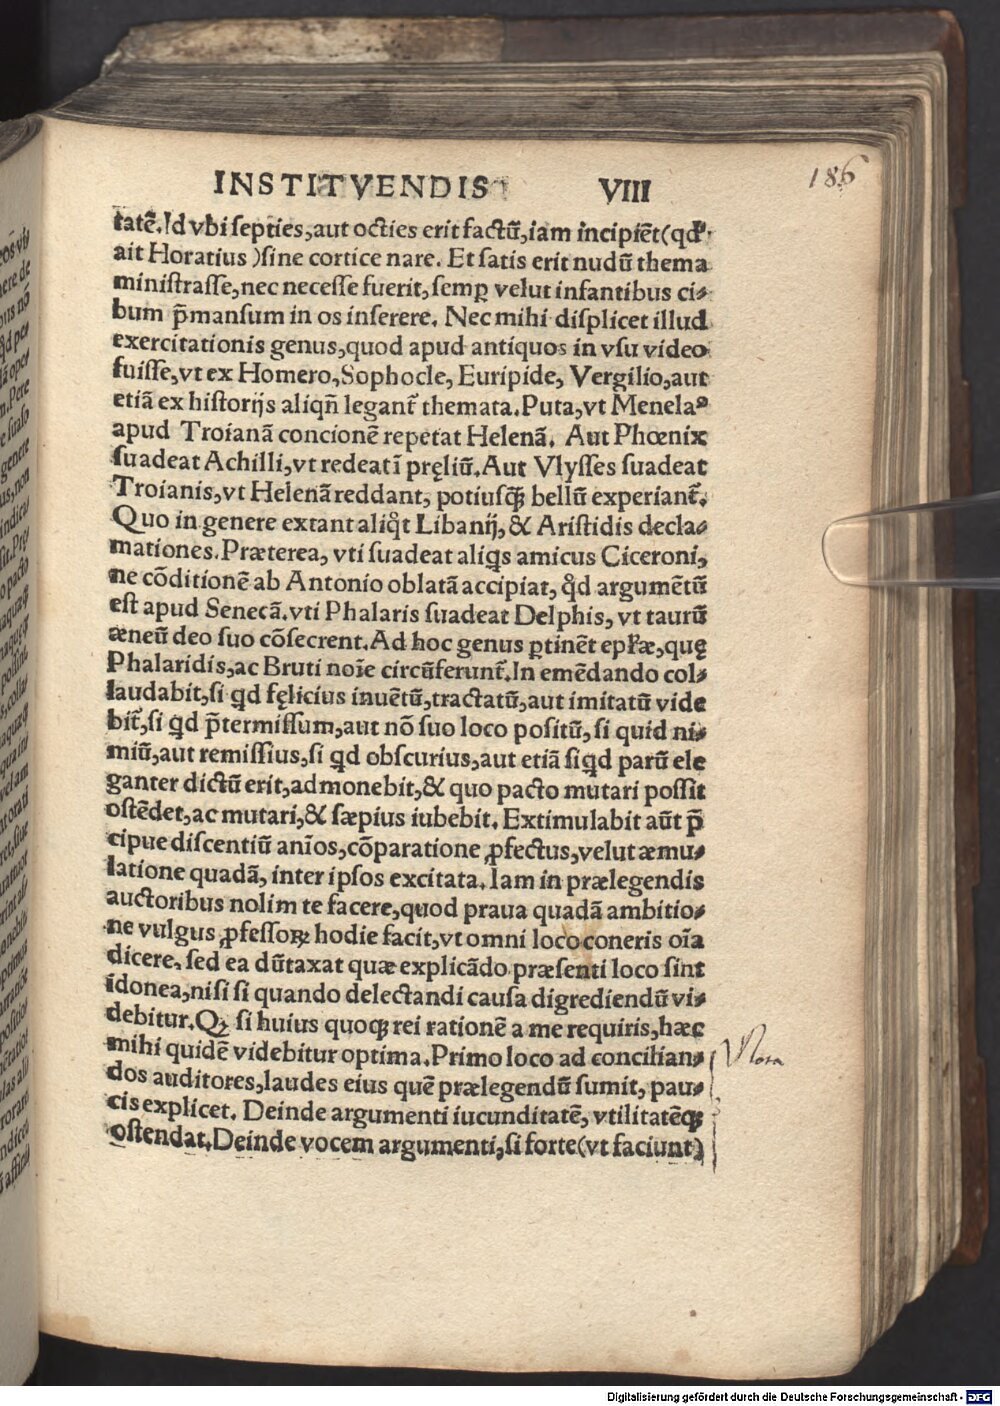 INSTITVENDIS VIII
186
tatē. Id vbi septies, aut octies erit factū, iam incipiēt (qđ
ait Horatius) sine cortice nare. Et satis erit nudū thema
ministrasse, nec necesse fuerit, semꝑ velut infantibus ci⸗
bum p̄mansum in os inserere. Nec mihi displicet illud
exercitationis genus, quod apud antiquos in vsu video
fuisse, vt ex Homero, Sophocle, Euripide, Vergilio, aut
etiā ex historijs aliqn̄ legant᷑ themata. Puta, vt Menelaꝰ
apud Troianā concionē repetat Helenā. Aut Phœnix
suadeat Achilli, vt redeat ī pręliū. Aut Vlysses suadeat
Troianis, vt Helenā reddant, potiusq̃ȝ bellū experiant᷑.
Quo in genere extant aliqͦt Libanij, & Aristidis decla⸗
mationes. Præterea, vti suadeat aliꝗs amicus Ciceroni,
ne cōditionē ab Antonio oblatā accipiat, qͦd argumētū
est apud Senecā. vti Phalaris suadeat Delphis, vt taurū
æneū deo suo cōsecrent. Ad hoc genus ꝑtinēt epl̄æ, quę
Phalaridis, ac Bruti noīe circūferunt᷑. In emēdando col⸗
laudabit, si ꝗd fęlicius inuētū, tractatū, aut imitatū vide
bit᷑, si ꝗd p̄termissum, aut nō suo loco positū, si quid ni⸗
miū, aut remissius, si ꝗd obscurius, aut etiā siꝗd parū ele
ganter dictū erit, admonebit, & quo pacto mutari possit
ostēdet, ac mutari, & sæpius iubebit. Extimulabit aūt p̄
cipue discentiū anīos, cōparatione ꝓfectus, velut æmu⸗
latione quadā, inter ipsos excitata. Iam in prælegendis
auctoribus nolim te facere, quod praua quadā ambitio⸗
ne vulgus ꝓfessoꝝ hodie facit, vt omni loco coneris oīa
dicere, sed ea dūtaxat quæ explicādo præsenti loco sint
idonea, nisi si quando delectandi causa digrediendū vi⸗
debitur. Qꝫ si huius quoqꝫ rei rationē a me requiris, hæc
mihi quidē videbitur optima. Primo loco ad concilian⸗
dos auditores, laudes eius quē prælegendū sumit, pau⸗
cis explicet. Deinde argumenti iucunditatē, vtilitatēqꝫ
ostendat. Deinde vocem argumenti, si forte (vt faciunt)
Nota
Digitalisierung gefördert durch die Deutsche Forschungsgemeinschaft - DFG